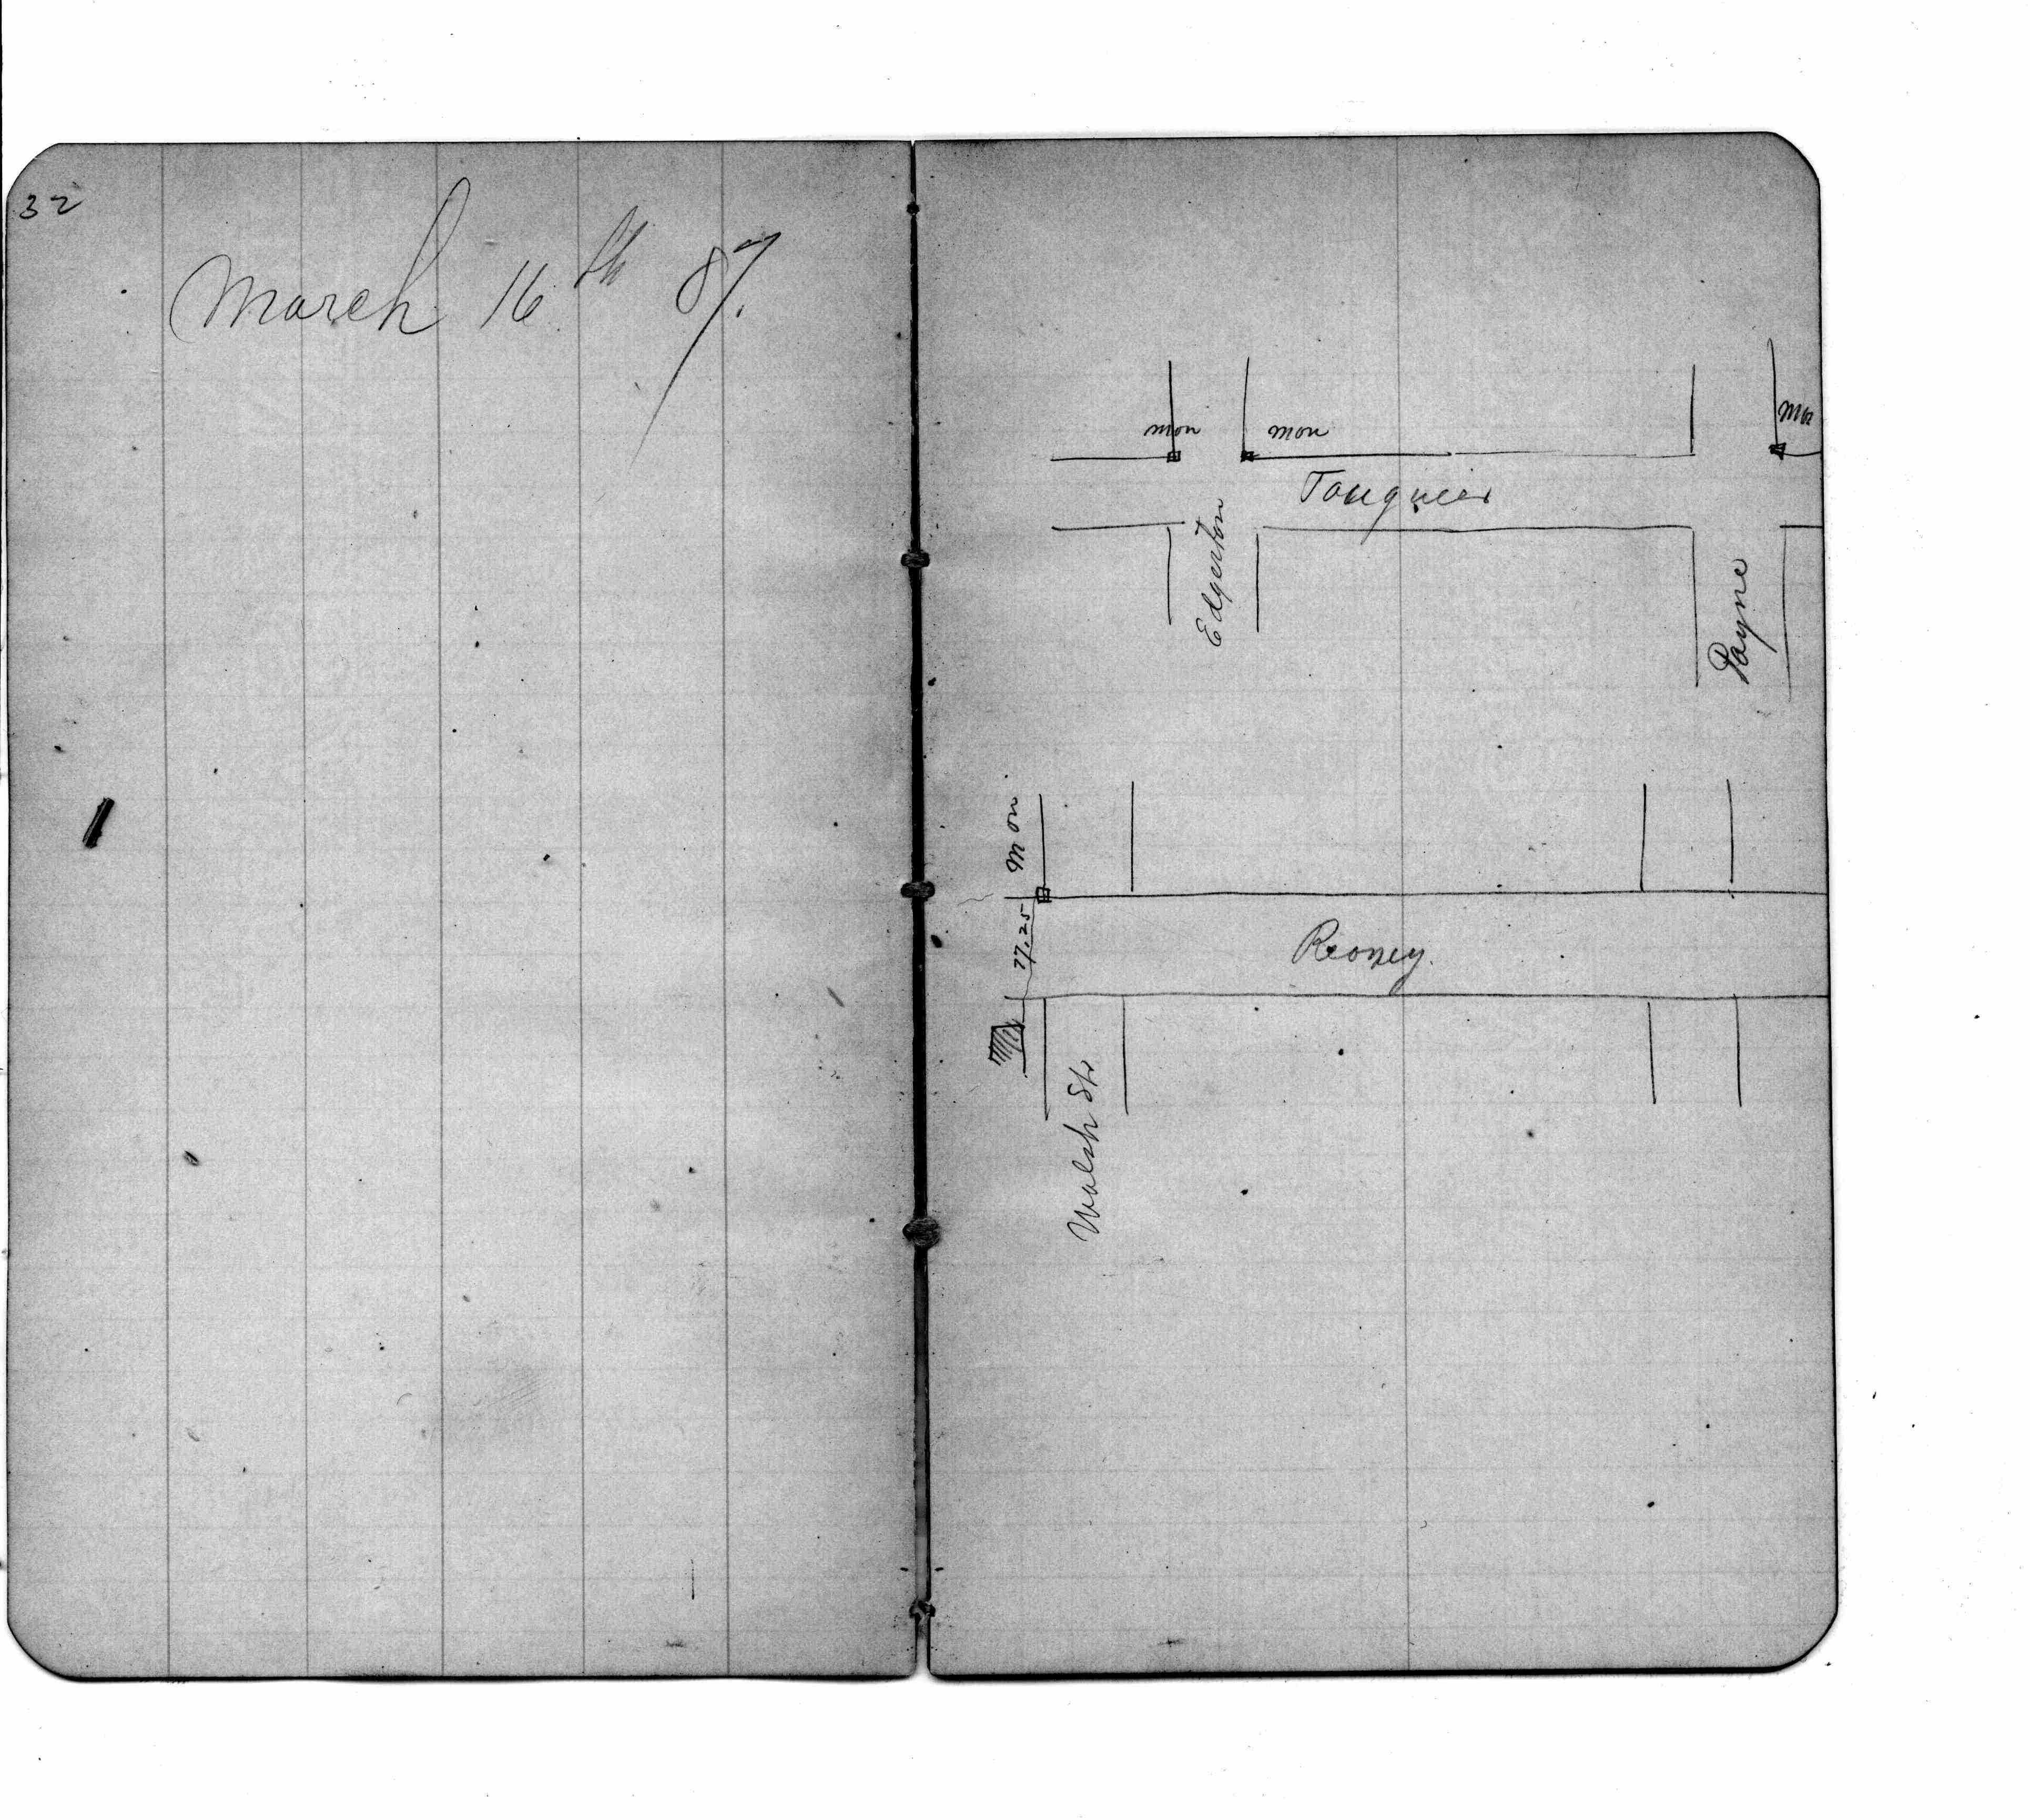 32
March 16th 87.
mon
mon
Mo
Edgerton
Payne
Mon
77.25
Reoney.
Walsh Str